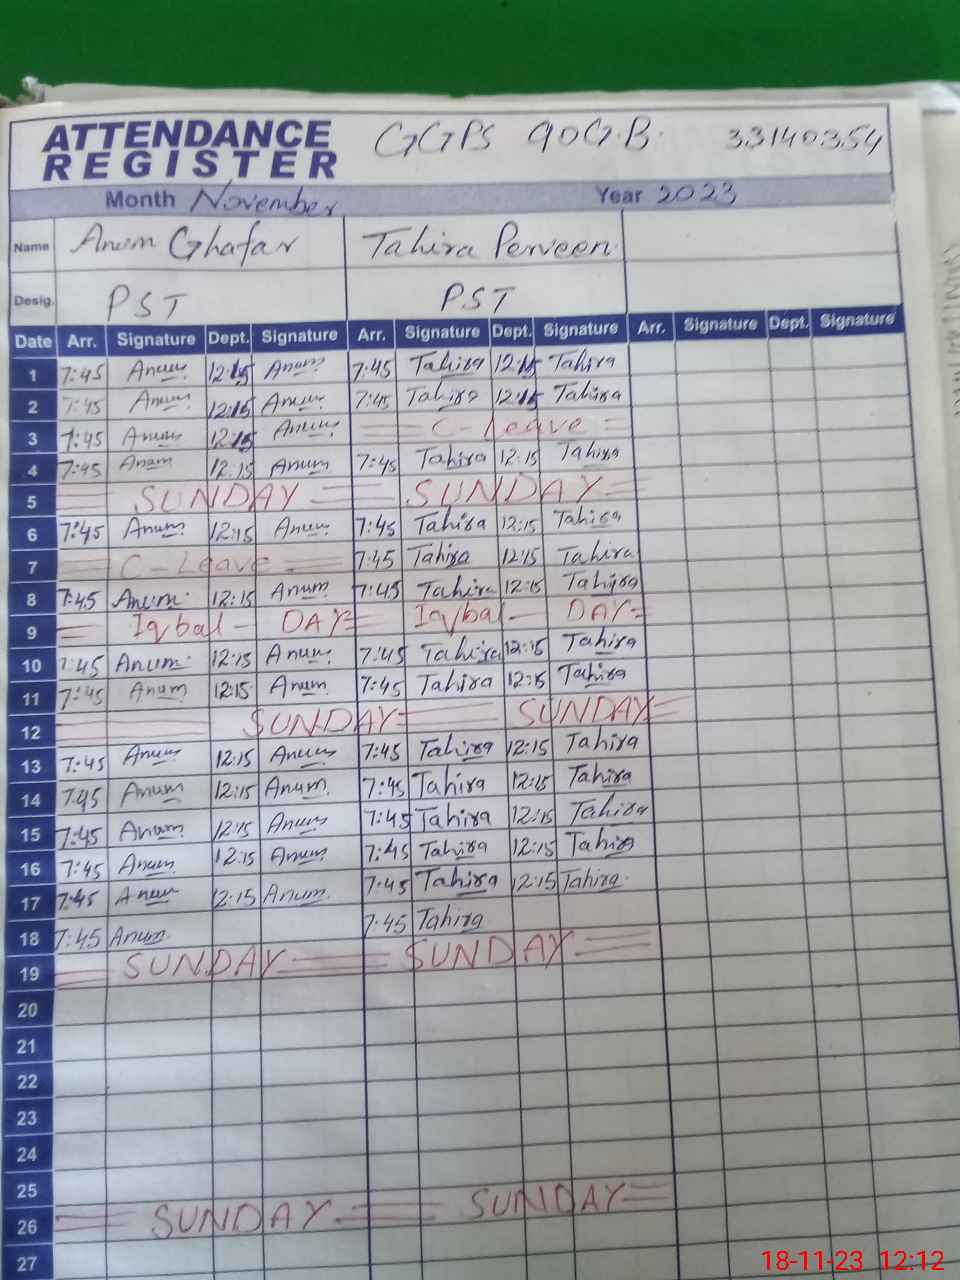 ATTENDANCE REGISTER GGPS 90 G.B. 33140354
Month November Year 2023
Name Anum Ghafar Tahira Perveen
Desig. PST PST
Date Arr. Signature Dept. Signature Arr. Signature Dept. Signature Arr. Signature Dept. Signature
1 7:45 Anum 12:15 Anum 7:45 Tahira 12:15 Tahira
2 7:45 Anum 12:15 Anum 7:45 Tahira 12:15 Tahira
3 7:45 Anum 12:15 Anum C-Leave
4 7:45 Anam 12:15 Anum 7:45 Tahira 12:15 Tahira
5 SUNDAY SUNDAY
6 7:45 Anum 12:15 Anum 7:45 Tahira 12:15 Tahira
7 C-Leave 7:45 Tahira 12:15 Tahira
8 7:45 Anum. 12:15 Anum 7:45 Tahira 12:15 Tahira
9 Iqbal - DAY Iqbal - DAY
10 7:45 Anum. 12:15 Anum 7:45 Tahira 12:15 Tahira
11 7:45 Anum 12:15 Anum 7:45 Tahira 12:15 Tahira
12 SUNDAY SUNDAY
13 7:45 Anum 12:15 Anum 7:45 Tahira 12:15 Tahira
14 7:45 Anum 12:15 Anum. 7:45 Tahira 12:15 Tahira
15 7:45 Anum 12:15 Anum 7:45 Tahira 12:15 Tahira
16 7:45 Anum 12:15 Anum 7:45 Tahira 12:15 Tahira
17 7:45 Anum 12:15 Anum. 7:45 Tahira 12:15 Tahira.
18 7:45 Anum. 7:45 Tahira
19 SUNDAY SUNDAY
20
21
22
23
24
25
26 SUNDAY SUNDAY
27
18-11-23 12:12